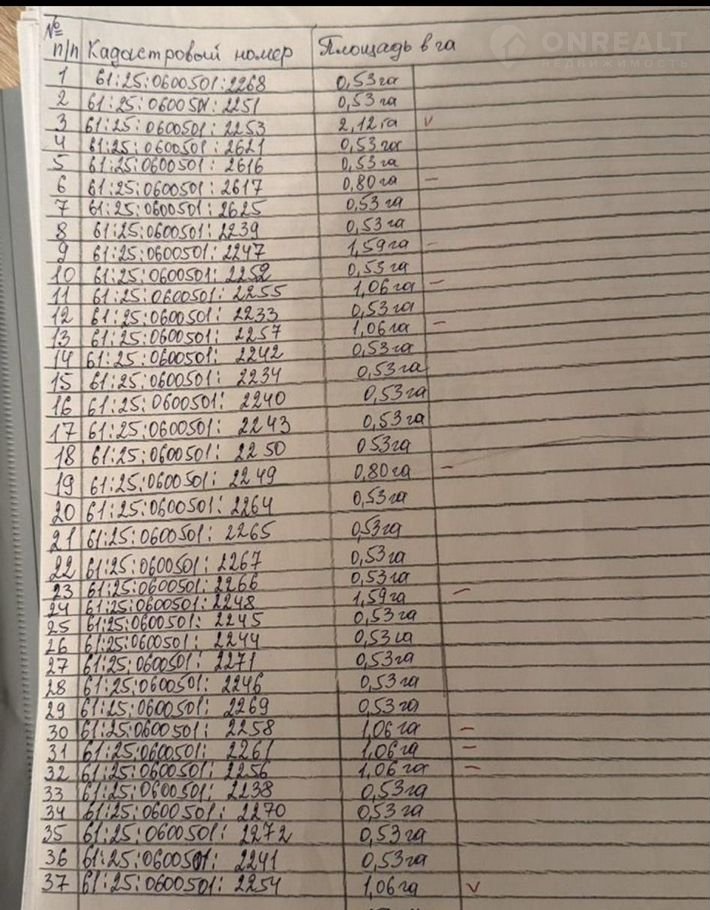 №
п/п Кадастровый номер Площадь в га
ONREALT
НЕДВИЖИМОСТЬ
1 61:25:0600501:2268 0,53 га
2 61:25:0600501:2251 0,53 га
3 61:25:0600501:2253 2,12 га v
4 61:25:0600501:2621 0,53 га
5 61:25:0600501:2616 0,53 га
6 61:25:0600501:2617 0,80 га -
7 61:25:0600501:2625 0,53 га
8 61:25:0600501:2239 0,53 га
9 61:25:0600501:2247 1,59 га -
10 61:25:0600501:2252 0,53 га
11 61:25:0600501:2255 1,06 га -
12 61:25:0600501:2233 0,53 га
13 61:25:0600501:2257 1,06 га -
14 61:25:0600501:2242 0,53 га
15 61:25:0600501:2234 0,53 га
16 61:25:0600501:2240 0,53 га
17 61:25:0600501:2243 0,53 га
18 61:25:0600501:2250 053 га
19 61:25:0600501:2249 0,80 га -
20 61:25:0600501:2264 0,53 га
21 61:25:0600501:2265 0,53 га
22 61:25:0600501:2267 0,53 га
23 61:25:0600501:2266 0,53 га
24 61:25:0600501:2248 1,59 га -
25 61:25:0600501:2245 0,53 га
26 61:25:0600501:2244 0,53 га
27 61:25:0600501:2271 0,53 га
28 61:25:0600501:2246 0,53 га
29 61:25:0600501:2269 0,53 га
30 61:25:0600501:2258 1,06 га -
31 61:25:0600501:2261 1,06 га -
32 61:25:0600501:2256 1,06 га -
33 61:25:0600501:2238 0,53 га
34 61:25:0600501:2270 0,53 га
35 61:25:0600501:2272 0,53 га
36 61:25:0600501:2241 0,53 га
37 61:25:0600501:2254 1,06 га v